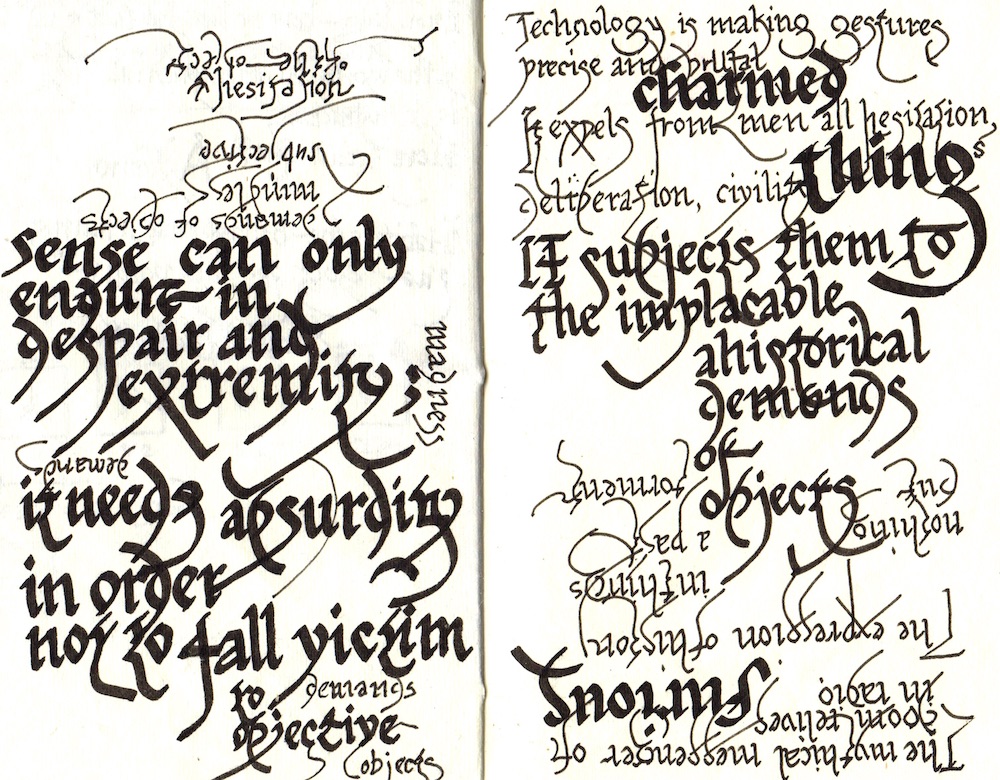 hesitation
subjective
demands of objects
sense can only
endure in
despair and
extremity;
madness
demand
it needs absurdity
in order
not to fall victim
to demands
objective
objects
Technology is making gestures
precise and brutal
charmed
It expels from men all hesitation,
things
deliberation, civility
IT subjects them to
the implacable
ahistorical
demands
of
objects
The mythical messenger of
doom relives
in radio
furious
The expression of history
in things
a past
nothing
but
torment